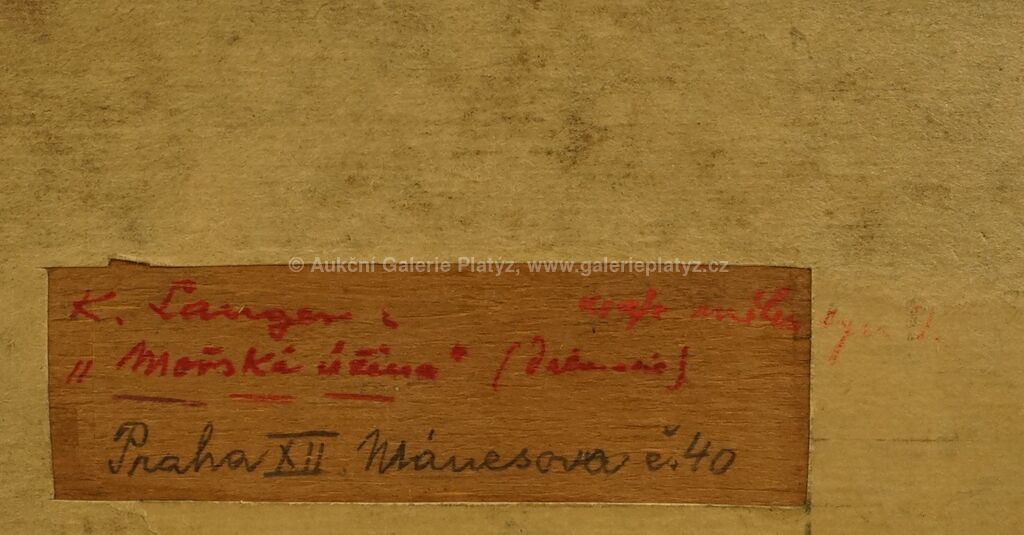 © Aukční Galerie Platýz, www.galerieplatyz.cz
K. Langer:
„Mořská úžina"
Praha XII. Mánesova č. 40